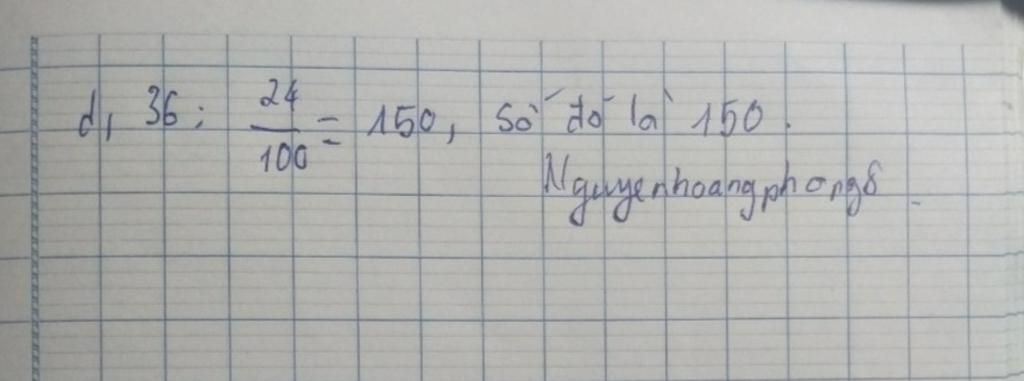 d, 36 : 24/100 = 150, Số đó là 150.
Nguyenhoangphong8